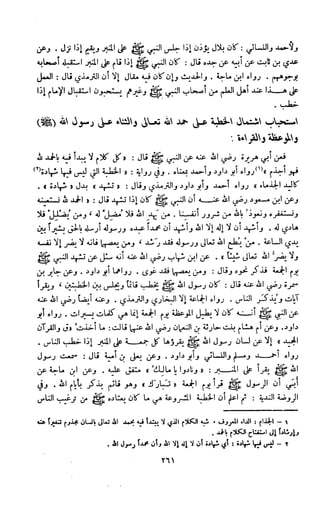 ولأحمد والنسائي: كان بلال يؤذن إذا جلس النبي ﷺ على المنبر ويقيم إذا نزل. وعن
عدي بن ثابت عن أبيه عن جده قال: كان النبي ﷺ إذا قام على المنبر استقبله أصحابه
بوجوههم. رواه ابن ماجة. والحديث وإن كان فيه مقال إلا أن الترمذي قال: العمل
على هذا عند أهل العلم من أصحاب النبي ﷺ وغيرهم يستحبون استقبال الإمام إذا
خطب.
استحباب اشتمال الخطبة على حمد الله تعالى والثناء على رسول الله (ﷺ)
والموعظة والقراءة:
فعن أبي هريرة رضي الله عنه عن النبي ﷺ قال: «كل كلام لا يبدأ فيه بالحمد لله
فهو أجذم»(١) رواه أبو داود وأحمد بمعناه. وفي رواية: «الخطبة التي ليس فيها شهادة(٢)
كاليد الجذماء» رواه أحمد وأبو داود والترمذي وقال: «تشهد» بدل «شهادة».
وعن ابن مسعود رضي الله عنه أن النبي ﷺ كان إذا تشهد قال: «الحمد لله نستعينه
ونستغفره ونعوذ بالله من شرور أنفسنا. من يهد الله فلا مضل له، ومن يضلل فلا
هادي له. وأشهد أن لا إله إلا الله وأشهد أن محمداً عبده ورسوله أرسله بالحق بشيراً بين
يدي الساعة. من يطع الله تعالى ورسوله فقد رشد، ومن يعصهما فإنه لا يضر إلا نفسه
ولا يضر الله تعالى شيئاً». عن ابن شهاب رضي الله عنه أنه سئل عن تشهد النبي ﷺ
يوم الجمعة فذكر نحوه وقال: ومن يعصهما فقد غوى. رواهما أبو داود. وعن جابر بن
سمرة رضي الله عنه قال: كان رسول الله ﷺ يخطب قائماً ويجلس بين الخطبتين، ويقرأ
آيات ويذكر الناس. رواه الجماعة إلا البخاري والترمذي. وعنه أيضاً رضي الله عنه
عن النبي ﷺ أنه كان لا يطيل الموعظة يوم الجمعة إنما هي كلمات يسيرات. رواه أبو
داود. وعن أم هشام بنت حارثة بن النعمان رضي الله عنها قالت: ما أخذت «ق والقرآن
المجيد» إلا عن لسان رسول الله ﷺ يقرؤها كل جمعة على المنبر إذا خطب الناس.
رواه أحمد ومسلم والنسائي وأبو داود. وعن يعلى بن أمية قال: سمعت رسول
الله ﷺ يقرأ على المنبر: «ونادوا يا مالك» متفق عليه. وعن ابن ماجة عن
أبي أن الرسول ﷺ قرأ يوم الجمعة «تبارك» وهو قائم يذكر بأيام الله. وفي
الروضة الندية: ثم اعلم أن الخطبة المشروعة هي ما كان يعتاده ﷺ من ترغيب الناس
١ - الجذام: الداء المعروف، شبه الكلام الذي لا يبتدأ فيه بحمد الله تعالى بإنسان مجذوم تنفيراً عنه
وإرشاداً إلى استفتاح الكلام بالحمد.
٢ - ليس فيها شهادة: أي شهادة أن لا إله إلا الله وأن محمداً رسول الله.
٢٦١